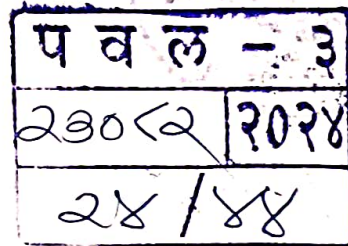 प व ल - ३
२३०८२ २०२४
२४ / ४४